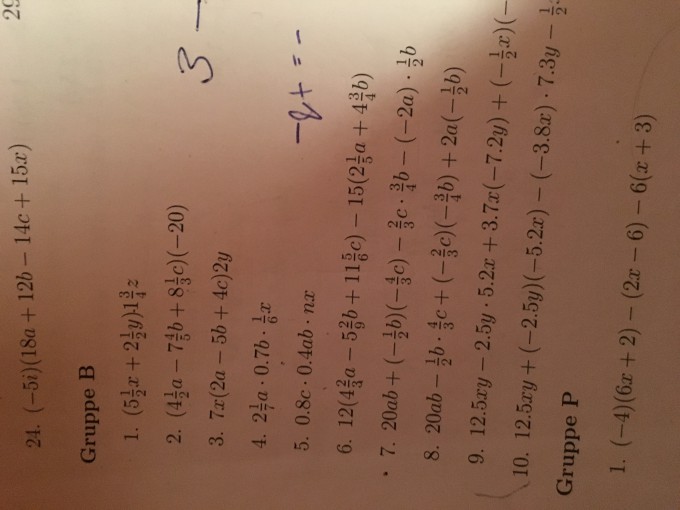 29
24. (−5i)(18a + 12b − 14c + 15x)
3 −
Gruppe B
1. (5½x + 2½y)·1¾z
2. (4½a − 7⅘b + 8⅓c)(−20)
3. 7x(2a − 5b + 4c)2y
4. 2 1/7 a · 0.7b · ⅙x
5. 0.8c · 0.4ab · nx
6. 12(4⅔a − 5 2/9 b + 11⅚c) − 15(2⅕a + 4¾b)
7. 20ab + (−½b)(−4/3 c) − ⅔c · ¾b − (−2a) · ½b
8. 20ab − ½b · 4/3 c + (−⅔c)(−¾b) + 2a(−½b)
9. 12.5xy − 2.5y · 5.2x + 3.7x(−7.2y) + (−½x)(−
10. 12.5xy + (−2.5y)(−5.2x) − (−3.8x) · 7.3y − ½
Gruppe P
1. (−4)(6x + 2) − (2x − 6) − 6(x + 3)